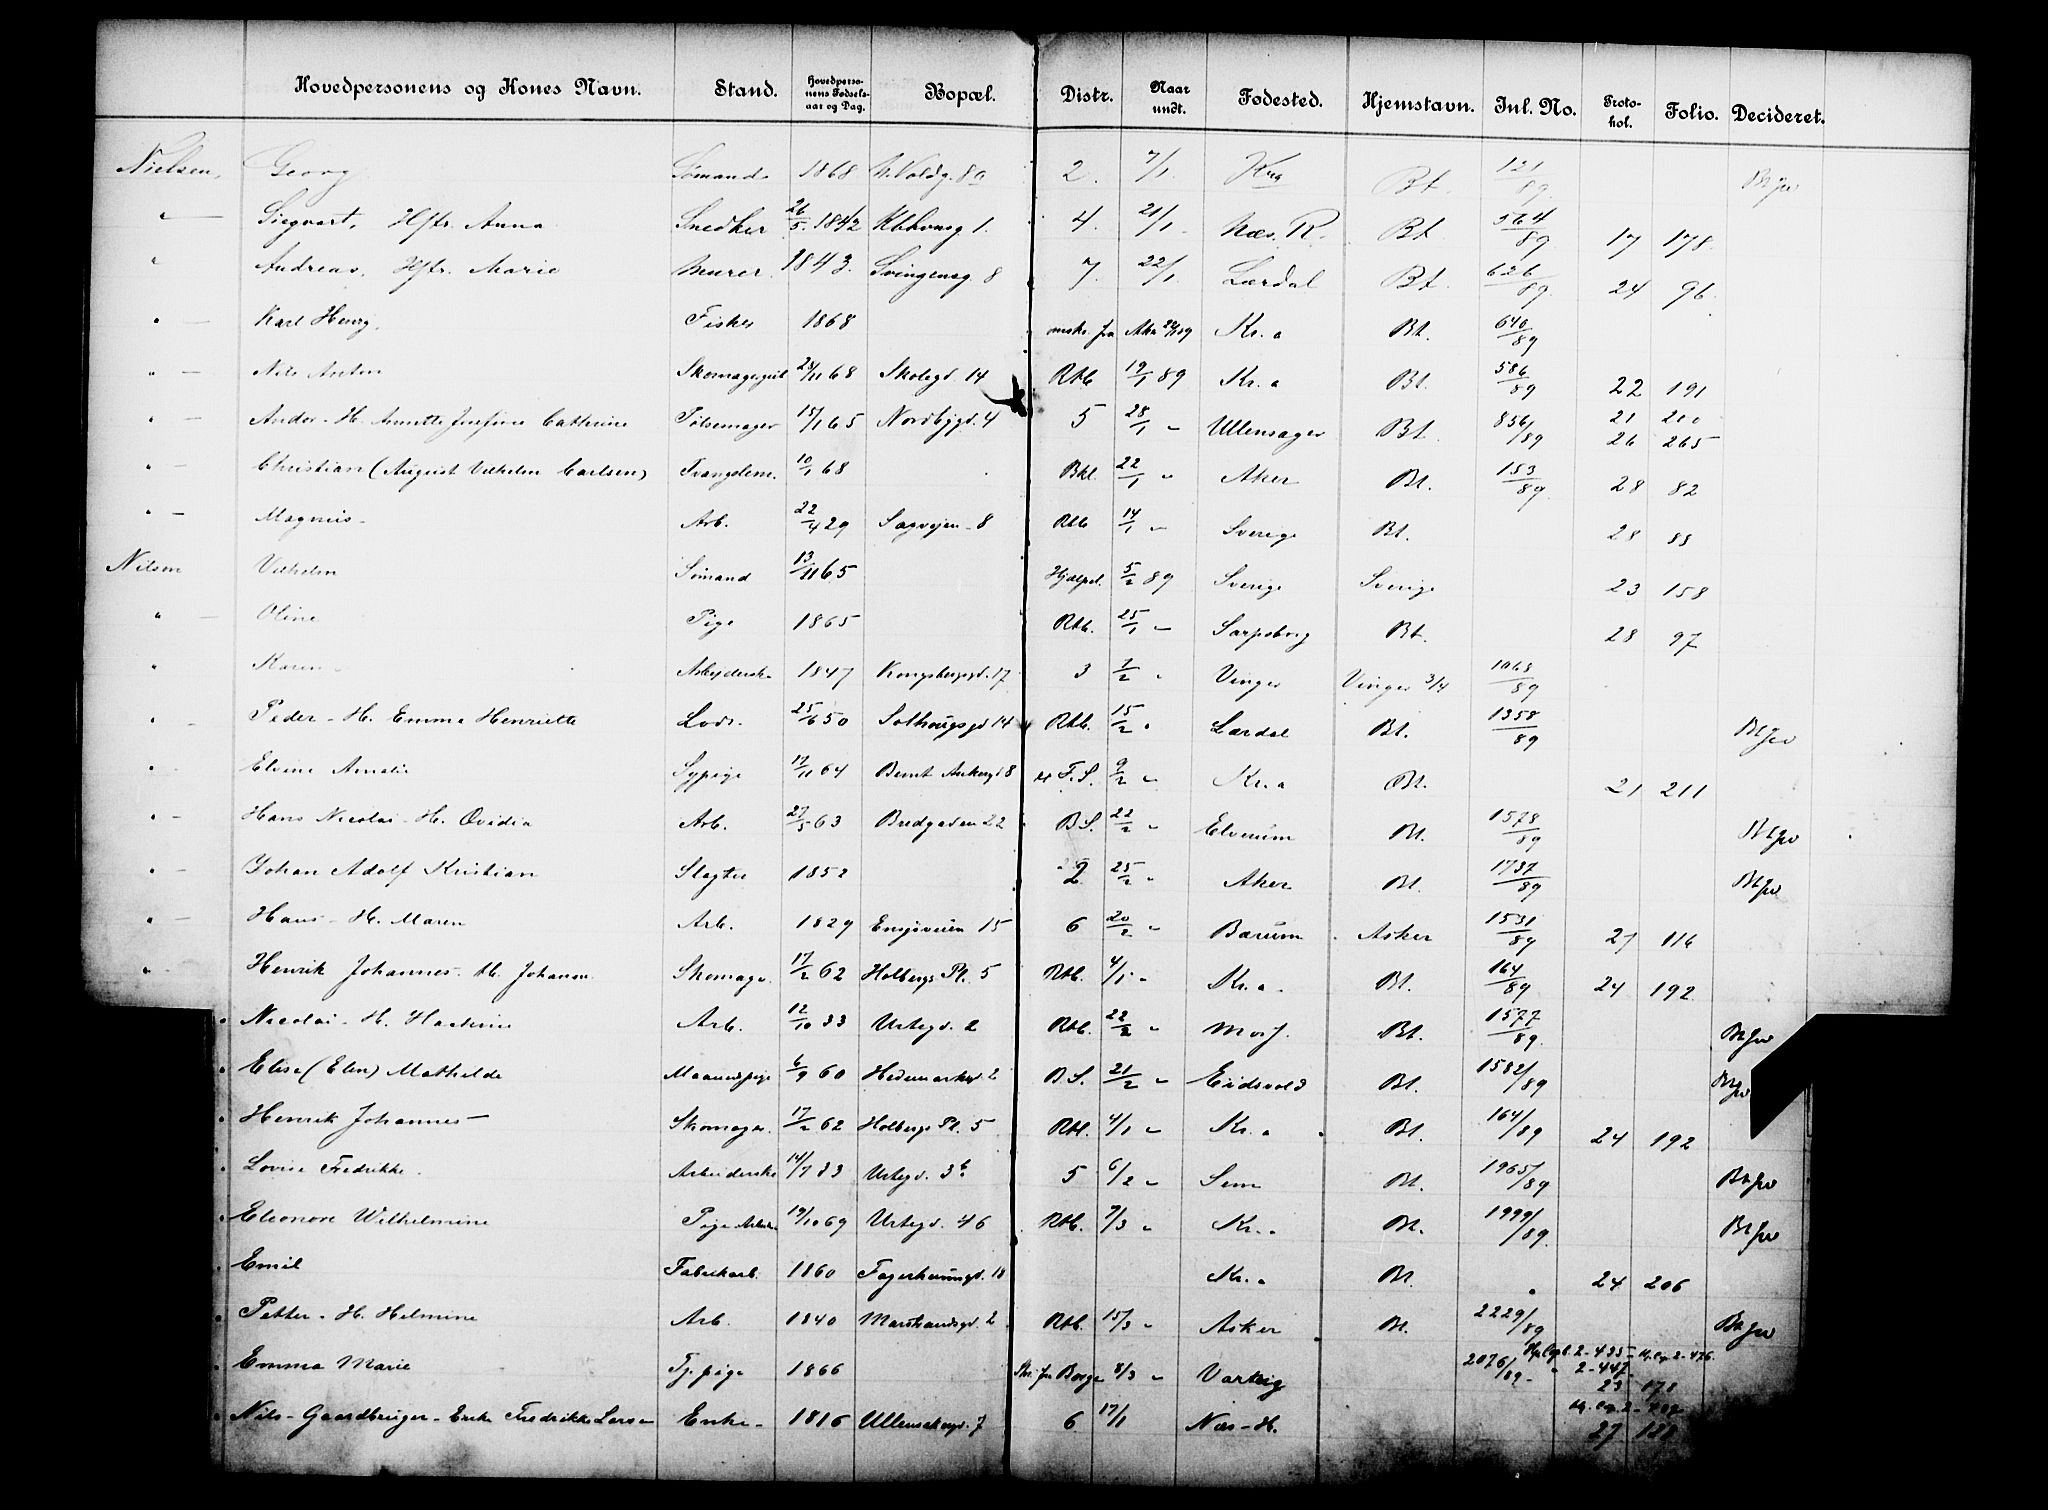 Hovedpersonens og Kones Navn. Stand. Hovedpersonens Fødselsaar og Dag. Bopæl. Distr. Naar undt. Fødested. Hjemstavn. Inl. No. Protokol. Folio. Decideret.
Nielsen, Georg Sømand 1868 2. 7/1 Kra Bt. 121/89
" — Siegvart, Hftr. Anna Snedker 26/5 1842 4. 21/1 Næs. R. Bt. 564/89 17 178
" Andreas, Hftr. Marie Murer 1843. Svingensg. 8 7. 22/1 Lærdal Bt. 626/89 24 96
" — Karl Henry, Fisker 1868 Kr.a Bt. 640/89
" — Nils Anton 68 Skolegd. 14 Rbb 19/1 89 Kr.a Bt. 586/89 22 191
" — Ander - H. Annette Josefine Cathrine Pølsemager 15/1 65 Nordbygd. 4 5 28/1 " Ullensager Bt. 856/89 21 210 26 265
" — Christian (August Vilhelm Carlsen) 10/1 68 22/1 " Aker Bt. 153/89 28 82
" — Magnus - Arb. 22/4 29 Sagvejen - 8 Rbb 14/1 " Sverige Bt. 28 88
Nilsen Vilhelm Sømand 13/11 65 Hjælpel. 5/2 89 Sverige Sverige 23 158
" — Oline Pige 1865 Rbb. 25/1 " Sarpsborg Bt. 28 97
" Karen - Arbejdersk. 1847 Kongsbergsgd. 17 3 " Vinger Vinger 3/4 1068/89
" - Peder - H. Emma Henriette Lods. 25/6 50 14 Rbb. 15/2 " Lærdal Bt. 1358/89 Btgv
" Elvine Amalie Sypige 64 Bernt Ankersgd 8 F.S. 9/2 " Kr.a Bt. 21 211
" - Hans Nicolai - H. Ovidia Arb. 27/5 63 Bredgaden 22 B.S. 22/2 " Elverum Bt. 1578/89 Btgv
" - Johan Adolf Kristian Slagter 1852 2 25/2 " Aker Bt. 1737/89 Btgv
" - Hans - H. Maren Arb. 1829 Ensjøveien 15 6 20/2 " Bærum Asker 1531/89 27 116
" Henrik Johannes - H. Johanne. Skomager 17/2 62 Holbergs Pl. 5 Rbb. 4/1 " Kr.a. Bt. 164/89 24 192
" Nicolai - H. Arb. 12/10 33 Urtegd. 2 Rbb. 22/2 " Bt. 1577/89 Btgv
" Elise (Elen) Mathilde 6/9 60 Hedemarksgd. 2 B.S. 21/2 " Eidsvold Bt. 1582/89 Btgv
" Henrik Johannes — Skomager. 17/2 62 Holbergs Pl. 5 Rbb. 4/1 " Kr.a Bt. 164/89 24 192
" Lovise Fredrikke. Arbeiderske 14/7 33 Urtegd. 3b 5 6/2 " Sem Bt. 1965/89 Btgv
" Eleonore Wilhelmine Pige 19/10 69 Urtegd. 46 Rbb. 7/3 " Kr.a Bt. 1999/89 Btgv
Emil Fabrikarb. 1860 18 Kr.a Bt. 24 206
" Petter - H. Helmine Arb. 1840 Markveiensgd. 2 Rbb. 15/3 " Asker Bt. 2229/89 Btgv
" Emma Marie Tj.pige 1866 8/3 " Varteig 2076/89 - 2 - 435 - 2 - 476. 2 - 447 23 178
" Nils - Gaardbruger - Enke Fredrikke Larsen Enke - 1816 Ullensakergd. 7 6 17/1 Næs - H. 27 188